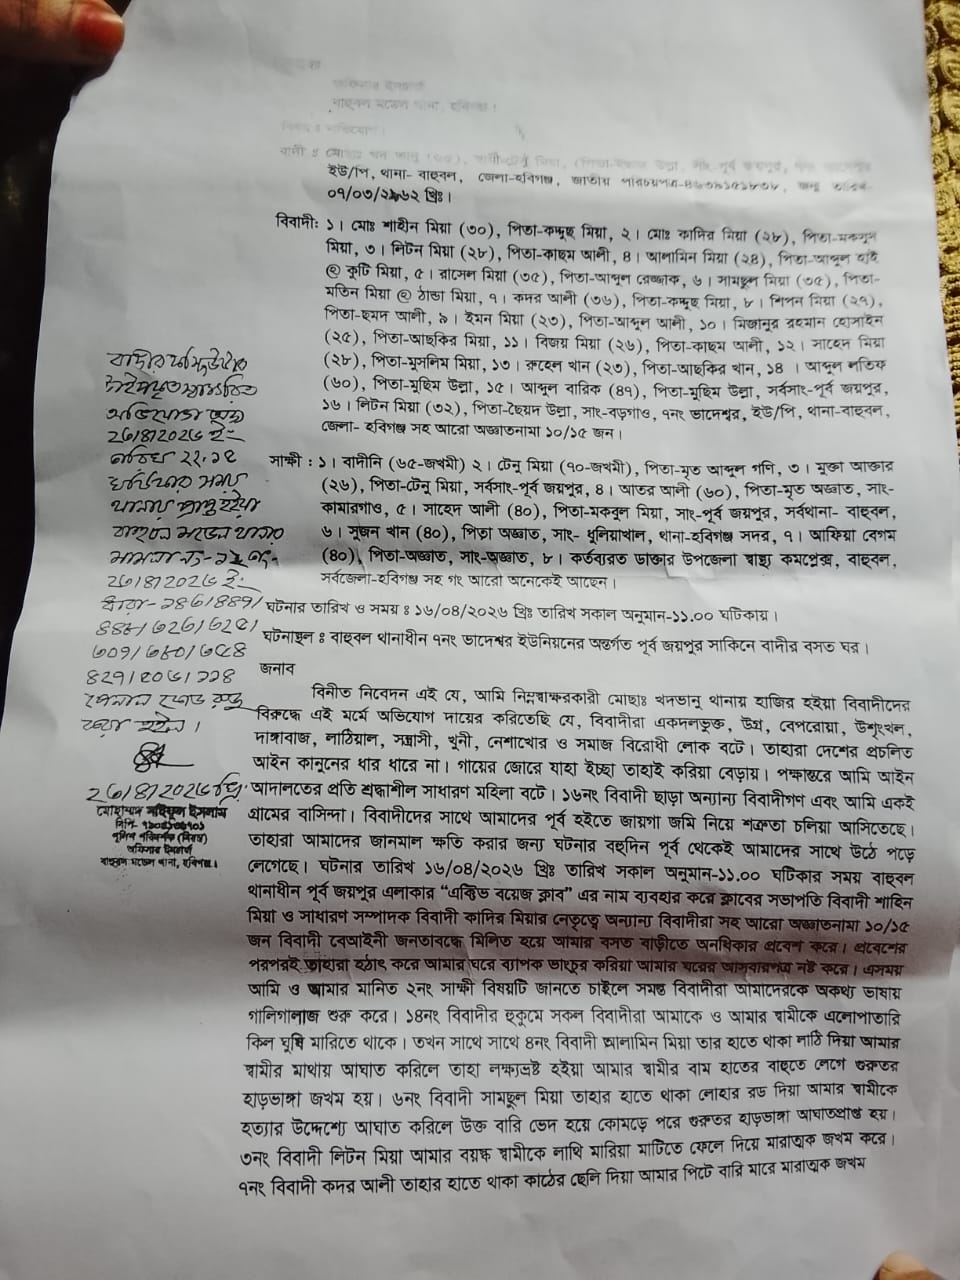 অফিসার ইনচার্জ
বাহুবল মডেল থানা, হবিগঞ্জ।
বিষয়ঃ অভিযোগ।
বাদী ঃ মোছাঃ খনভানু (৬৫), মিয়া, সাং-পূর্ব জয়পুর, ৭নং ভাদেশ্বর
ইউ/পি, থানা- বাহুবল, জেলা-হবিগঞ্জ, জাতীয় পরিচয়পত্র-
০৭/০৩/১৯৬২ খ্রিঃ।
বিবাদী: ১। মোঃ শাহীন মিয়া (৩০), পিতা-কদ্দুছ মিয়া, ২। মোঃ কাদির মিয়া (২৮), পিতা-মকসুদ
মিয়া, ৩। লিটন মিয়া (২৮), পিতা-কাছম আলী, ৪। আলামিন মিয়া (২৪), পিতা-আব্দুল হাই
@ কুটি মিয়া, ৫। রাসেল মিয়া (৩৫), পিতা-আব্দুল রেজ্জাক, ৬। সামছুল মিয়া (৩৫), পিতা-
মতিন মিয়া @ ঠান্ডা মিয়া, ৭। কদর আলী (৩৬), পিতা-কদ্দুছ মিয়া, ৮। শিপন মিয়া (২৭),
পিতা-ছমদ আলী, ৯। ইমন মিয়া (২৩), পিতা-আব্দুল আলী, ১০। মিজানুর রহমান হোসাইন
(২৫), পিতা-আছকির মিয়া, ১১। বিজয় মিয়া (২৬), পিতা-কাছম আলী, ১২। সাহেদ মিয়া
(২৮), পিতা-মুসলিম মিয়া, ১৩। রুহেল খান (২৩), পিতা-আছকির খান, ১৪। আব্দুল লতিফ
(৬০), পিতা-মুছিম উল্লা, ১৫। আব্দুল বারিক (৪৭), পিতা-মুছিম উল্লা, সর্বসাং-পূর্ব জয়পুর,
১৬। লিটন মিয়া (৩২), পিতা-ছৈয়দ উল্লা, সাং-বড়গাও, ৭নং ভাদেশ্বর, ইউ/পি, থানা-বাহুবল,
জেলা- হবিগঞ্জ সহ আরো অজ্ঞাতনামা ১০/১৫ জন।
সাক্ষী : ১। বাদীনি (৬৫-জখমী) ২। টেনু মিয়া (৭০-জখমী), পিতা-মৃত আব্দুল গণি, ৩। মুক্তা আক্তার
(২৬), পিতা-টেনু মিয়া, সর্বসাং-পূর্ব জয়পুর, ৪। আতর আলী (৬০), পিতা-মৃত অজ্ঞাত, সাং-
কামারগাও, ৫। সাহেদ আলী (৪০), পিতা-মকবুল মিয়া, সাং-পূর্ব জয়পুর, সর্বথানা- বাহুবল,
৬। সুজন খান (৪০), পিতা অজ্ঞাত, সাং- ধুলিয়াখাল, থানা-হবিগঞ্জ সদর, ৭। আফিয়া বেগম
(৪০), পিতা-অজ্ঞাত, সাং-অজ্ঞাত, ৮। কর্তব্যরত ডাক্তার উপজেলা স্বাস্থ্য কমপ্লেক্স, বাহুবল,
সর্বজেলা-হবিগঞ্জ সহ গং আরো অনেকেই আছেন।
ঘটনার তারিখ ও সময় ঃ ১৬/০৪/২০২৬ খ্রিঃ তারিখ সকাল অনুমান-১১.০০ ঘটিকায়।
ঘটনাস্থল ঃ বাহুবল থানাধীন ৭নং ভাদেশ্বর ইউনিয়নের অন্তর্গত পূর্ব জয়পুর সাকিনে বাদীর বসত ঘর।
জনাব
বিনীত নিবেদন এই যে, আমি নিম্নস্বাক্ষরকারী মোছাঃ খনভানু থানায় হাজির হইয়া বিবাদীদের
বিরুদ্ধে এই মর্মে অভিযোগ দায়ের করিতেছি যে, বিবাদীরা একদলভুক্ত, উগ্র, বেপরোয়া, উশৃংখল,
দাঙ্গাবাজ, লাঠিয়াল, সন্ত্রাসী, খুনী, নেশাখোর ও সমাজ বিরোধী লোক বটে। তাহারা দেশের প্রচলিত
আইন কানুনের ধার ধারে না। গায়ের জোরে যাহা ইচ্ছা তাহাই করিয়া বেড়ায়। পক্ষান্তরে আমি আইন
আদালতের প্রতি শ্রদ্ধাশীল সাধারণ মহিলা বটে। ১৬নং বিবাদী ছাড়া অন্যান্য বিবাদীগণ এবং আমি একই
গ্রামের বাসিন্দা। বিবাদীদের সাথে আমাদের পূর্ব হইতে জায়গা জমি নিয়ে শত্রুতা চলিয়া আসিতেছে।
তাহারা আমাদের জানমাল ক্ষতি করার জন্য ঘটনার বহুদিন পূর্ব থেকেই আমাদের সাথে উঠে পড়ে
লেগেছে। ঘটনার তারিখ ১৬/০৪/২০২৬ খ্রিঃ তারিখ সকাল অনুমান-১১.০০ ঘটিকার সময় বাহুবল
থানাধীন পূর্ব জয়পুর এলাকার “এক্টিভ বয়েজ ক্লাব” এর নাম ব্যবহার করে ক্লাবের সভাপতি বিবাদী শাহিন
মিয়া ও সাধারণ সম্পাদক বিবাদী কাদির মিয়ার নেতৃত্বে অন্যান্য বিবাদীরা সহ আরো অজ্ঞাতনামা ১০/১৫
জন বিবাদী বেআইনী জনতাবদ্ধে মিলিত হয়ে আমার বসত বাড়ীতে অনধিকার প্রবেশ করে। প্রবেশের
পরপরই তাহারা হঠাৎ করে আমার ঘরে ব্যাপক ভাংচুর করিয়া আমার ঘরের আসবারপত্র নষ্ট করে। এসময়
আমি ও আমার মানিত ২নং সাক্ষী বিষয়টি জানতে চাইলে সমস্ত বিবাদীরা আমাদেরকে অকথ্য ভাষায়
গালিগালাজ শুরু করে। ১৪নং বিবাদীর হুকুমে সকল বিবাদীরা আমাকে ও আমার স্বামীকে এলোপাতারি
কিল ঘুষি মারিতে থাকে। তখন সাথে সাথে ৪নং বিবাদী আলামিন মিয়া তার হাতে থাকা লাঠি দিয়া আমার
স্বামীর মাথায় আঘাত করিলে তাহা লক্ষ্যভ্রষ্ট হইয়া আমার স্বামীর বাম হাতের বাহুতে লেগে গুরুতর
হাড়ভাঙ্গা জখম হয়। ৬নং বিবাদী সামছুল মিয়া তাহার হাতে থাকা লোহার রড দিয়া আমার স্বামীকে
হত্যার উদ্দেশ্যে আঘাত করিলে উক্ত বারি ভেদ হয়ে কোমড়ে পরে গুরুতর হাড়ভাঙ্গা আঘাতপ্রাপ্ত হয়।
৩নং বিবাদী লিটন মিয়া আমার বয়স্ক স্বামীকে লাথি মারিয়া মাটিতে ফেলে দিয়ে মারাত্মক জখম করে।
৭নং বিবাদী কদর আলী তাহার হাতে থাকা কাঠের ছেলি দিয়া আমার পিটে বারি মারে মারাত্মক জখম
অভিযোগ
২৬/৪/২০২৬ ইং
থানায় প্রাপ্ত হইয়া
বাহুবল মডেল থানার
মামলা নং-
২৬/৪/২০২৬ ইং
ধারা-১৪৩/৪৪৭/
৪৪৮/৩২৩/৩২৫/
৩০৭/
৪২৭/৫০৬/১১৪
পেনাল কোড রুজু
করা হইল।
২৬/৪/২০২৬ খ্রি:
পুলিশ পরিদর্শক (নিরস্ত্র)
অফিসার ইনচার্জ
বাহুবল মডেল থানা, হবিগঞ্জ।